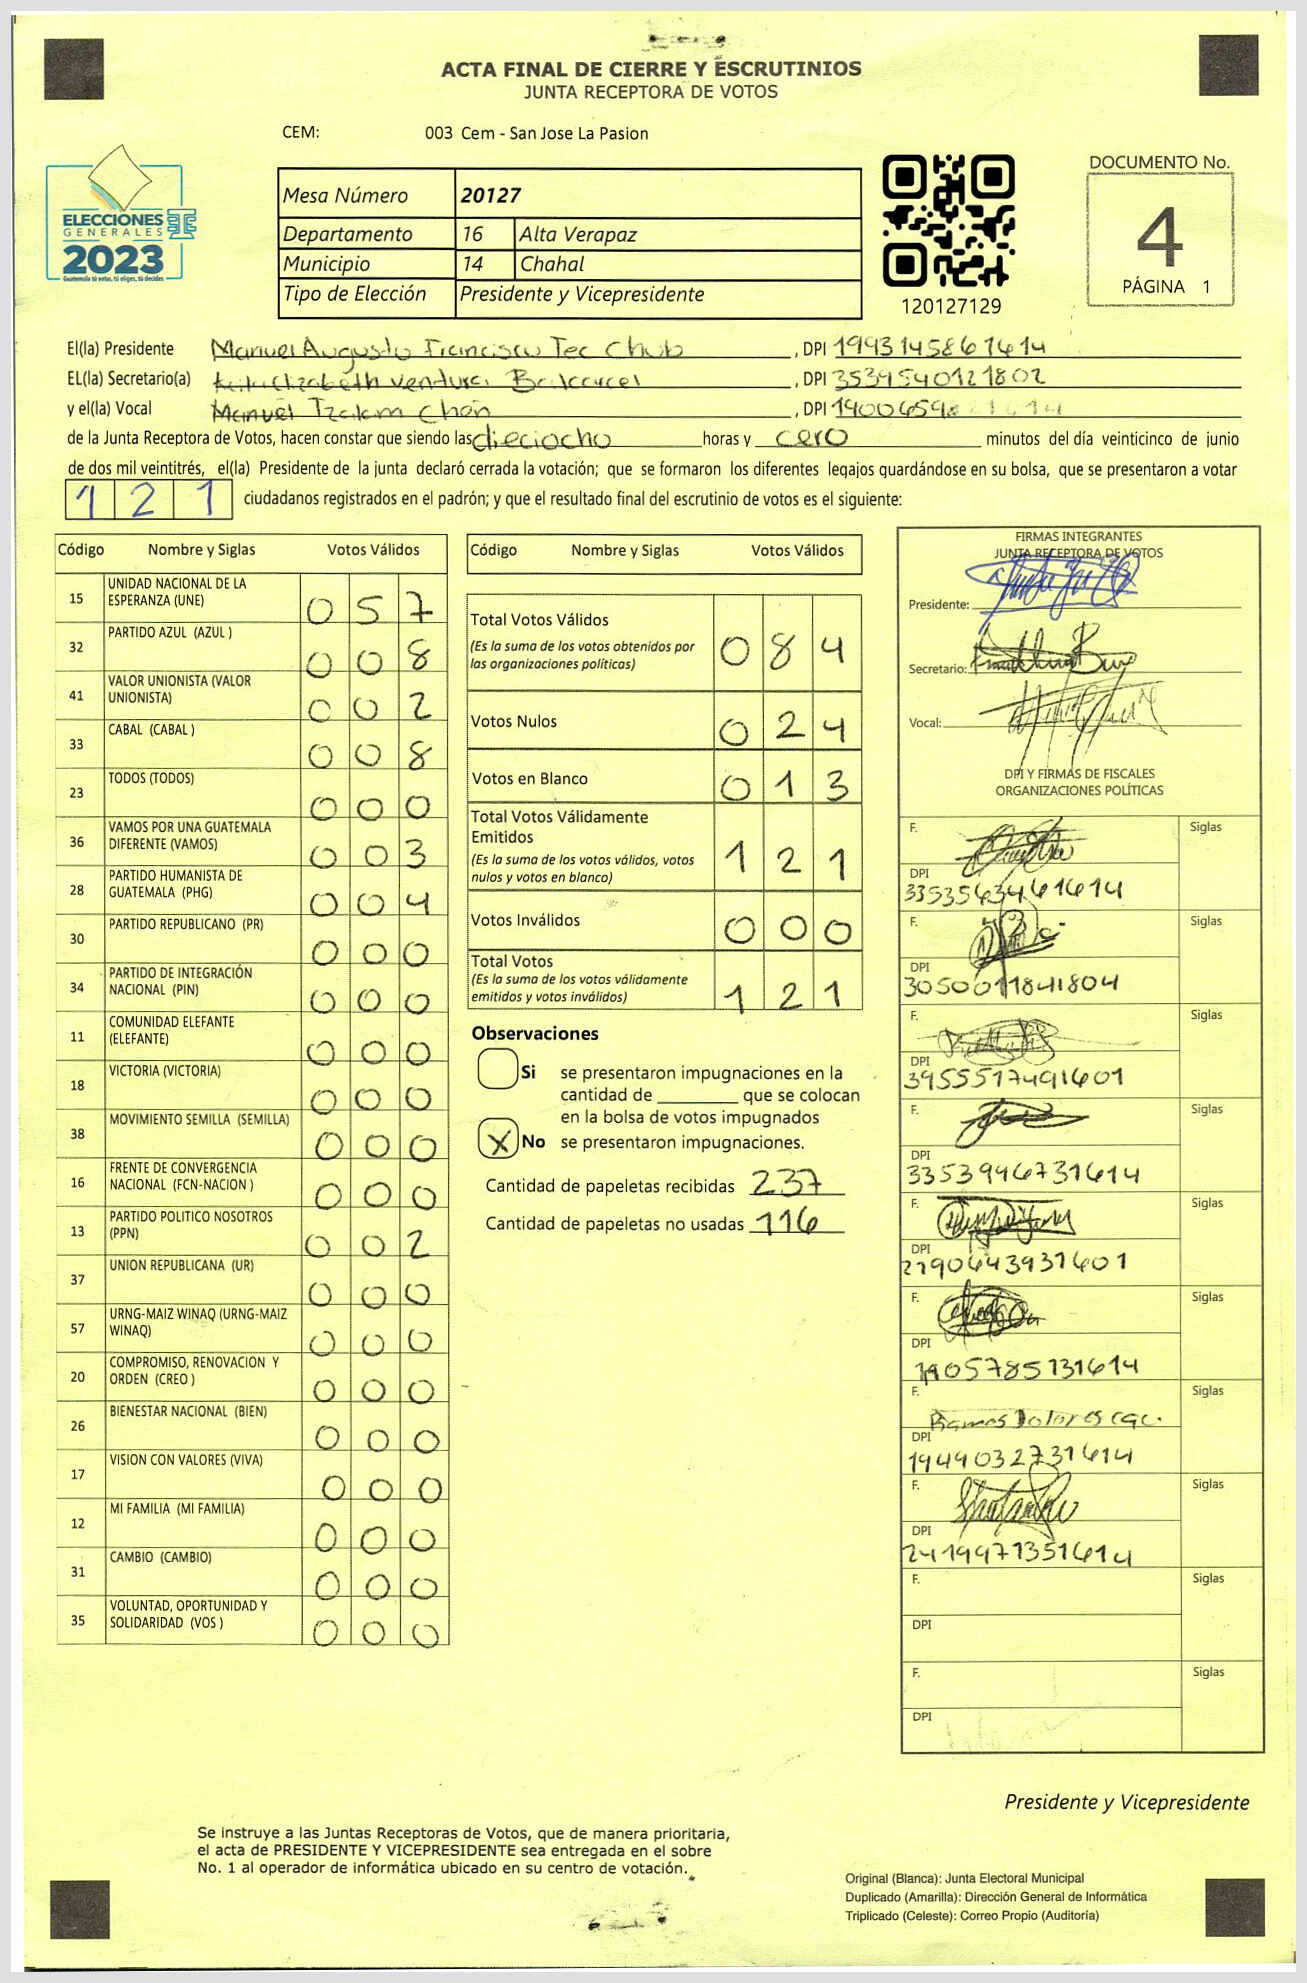 ACTA FINAL DE CIERRE Y ESCRUTINIOS
JUNTA RECEPTORA DE VOTOS
CEM: 003 Cem - San Jose La Pasion
ELECCIONES
GENERALES
2023
Guatemala tú votas, tú eliges, tú decides
Mesa Número 20127
Departamento 16 Alta Verapaz
Municipio 14 Chahal
Tipo de Elección Presidente y Vicepresidente
120127129
DOCUMENTO No.
4
PÁGINA 1
El(la) Presidente Manuel Augusto Francisco Tec Chub, DPI 1993145861614
EL(la) Secretario(a) Elizabeth Ventura, DPI 3539540121802
y el(la) Vocal Manuel Tzalam Chón, DPI
de la Junta Receptora de Votos, hacen constar que siendo las dieciocho horas y cero minutos del día veinticinco de junio
de dos mil veintitrés, el(la) Presidente de la junta declaró cerrada la votación; que se formaron los diferentes legajos guardándose en su bolsa, que se presentaron a votar
121 ciudadanos registrados en el padrón; y que el resultado final del escrutinio de votos es el siguiente:
Código Nombre y Siglas Votos Válidos
15 UNIDAD NACIONAL DE LA ESPERANZA (UNE) 057
32 PARTIDO AZUL (AZUL ) 008
41 VALOR UNIONISTA (VALOR UNIONISTA) 002
33 CABAL (CABAL ) 008
23 TODOS (TODOS) 000
36 VAMOS POR UNA GUATEMALA DIFERENTE (VAMOS) 003
28 PARTIDO HUMANISTA DE GUATEMALA (PHG) 004
30 PARTIDO REPUBLICANO (PR) 000
34 PARTIDO DE INTEGRACIÓN NACIONAL (PIN) 000
11 COMUNIDAD ELEFANTE (ELEFANTE) 000
18 VICTORIA (VICTORIA) 000
38 MOVIMIENTO SEMILLA (SEMILLA) 000
16 FRENTE DE CONVERGENCIA NACIONAL (FCN-NACION ) 000
13 PARTIDO POLITICO NOSOTROS (PPN) 002
37 UNION REPUBLICANA (UR) 000
57 URNG-MAIZ WINAQ (URNG-MAIZ WINAQ) 000
20 COMPROMISO, RENOVACION Y ORDEN (CREO ) 000
26 BIENESTAR NACIONAL (BIEN) 000
17 VISION CON VALORES (VIVA) 000
12 MI FAMILIA (MI FAMILIA) 000
31 CAMBIO (CAMBIO) 000
35 VOLUNTAD, OPORTUNIDAD Y SOLIDARIDAD (VOS ) 000
Código Nombre y Siglas Votos Válidos
Total Votos Válidos 084
(Es la suma de los votos obtenidos por
las organizaciones políticas)
Votos Nulos 024
Votos en Blanco 013
Total Votos Válidamente
Emitidos 121
(Es la suma de los votos válidos, votos
nulos y votos en blanco)
Votos Inválidos 000
Total Votos 121
(Es la suma de los votos válidamente
emitidos y votos inválidos)
Observaciones
Si se presentaron impugnaciones en la
cantidad de ________ que se colocan
en la bolsa de votos impugnados
X No se presentaron impugnaciones.
Cantidad de papeletas recibidas 237
Cantidad de papeletas no usadas 116
FIRMAS INTEGRANTES
JUNTA RECEPTORA DE VOTOS
Presidente:
Secretario:
Vocal:
DPI Y FIRMAS DE FISCALES
ORGANIZACIONES POLÍTICAS
F. Siglas
DPI
3353563461614
F. Siglas
DPI
3050011841804
F. Siglas
DPI
3955517491601
F. Siglas
DPI
3353946731614
F. Siglas
DPI
2790643931601
F. Siglas
DPI
1905785131614
F. Ramos Dolores Siglas
DPI
1949032731614
F. Siglas
DPI
2419971351614
F. Siglas
DPI
F. Siglas
DPI
Presidente y Vicepresidente
Se instruye a las Juntas Receptoras de Votos, que de manera prioritaria,
el acta de PRESIDENTE Y VICEPRESIDENTE sea entregada en el sobre
No. 1 al operador de informática ubicado en su centro de votación.
Original (Blanca): Junta Electoral Municipal
Duplicado (Amarilla): Dirección General de Informática
Triplicado (Celeste): Correo Propio (Auditoría)